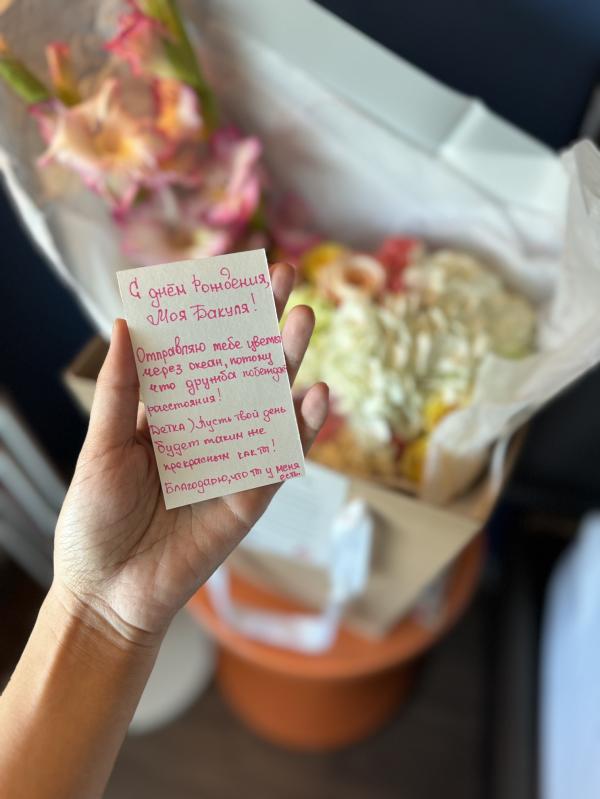 С днём Рождения,
Моя Бакуля!
Отправляю тебе цветы
через океан, потому
что дружба побеждает
расстояния!
Детка) Пусть твой день
будет таким же
прекрасным как ты!
Благодарю, что ты у меня
есть.